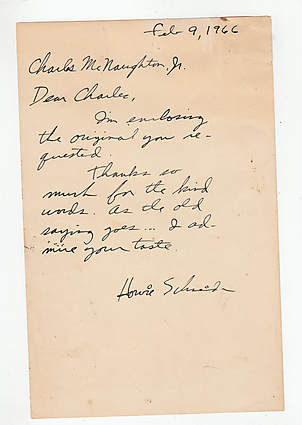 Feb 9, 1966
Charles McNaughton, Jr.
Dear Charles,
I'm enclosing
the original you re-
quested.
Thanks so
much for the kind
words. As the old
saying goes... I ad-
mire your taste.
Howie Schneider